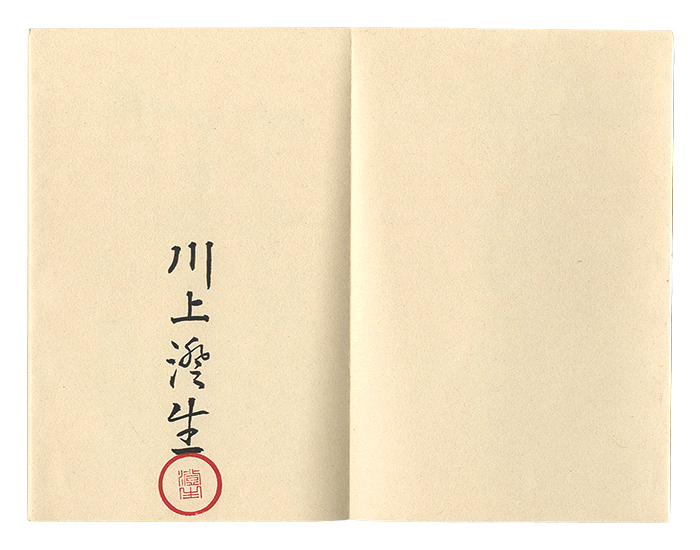 川上澄生
澄生